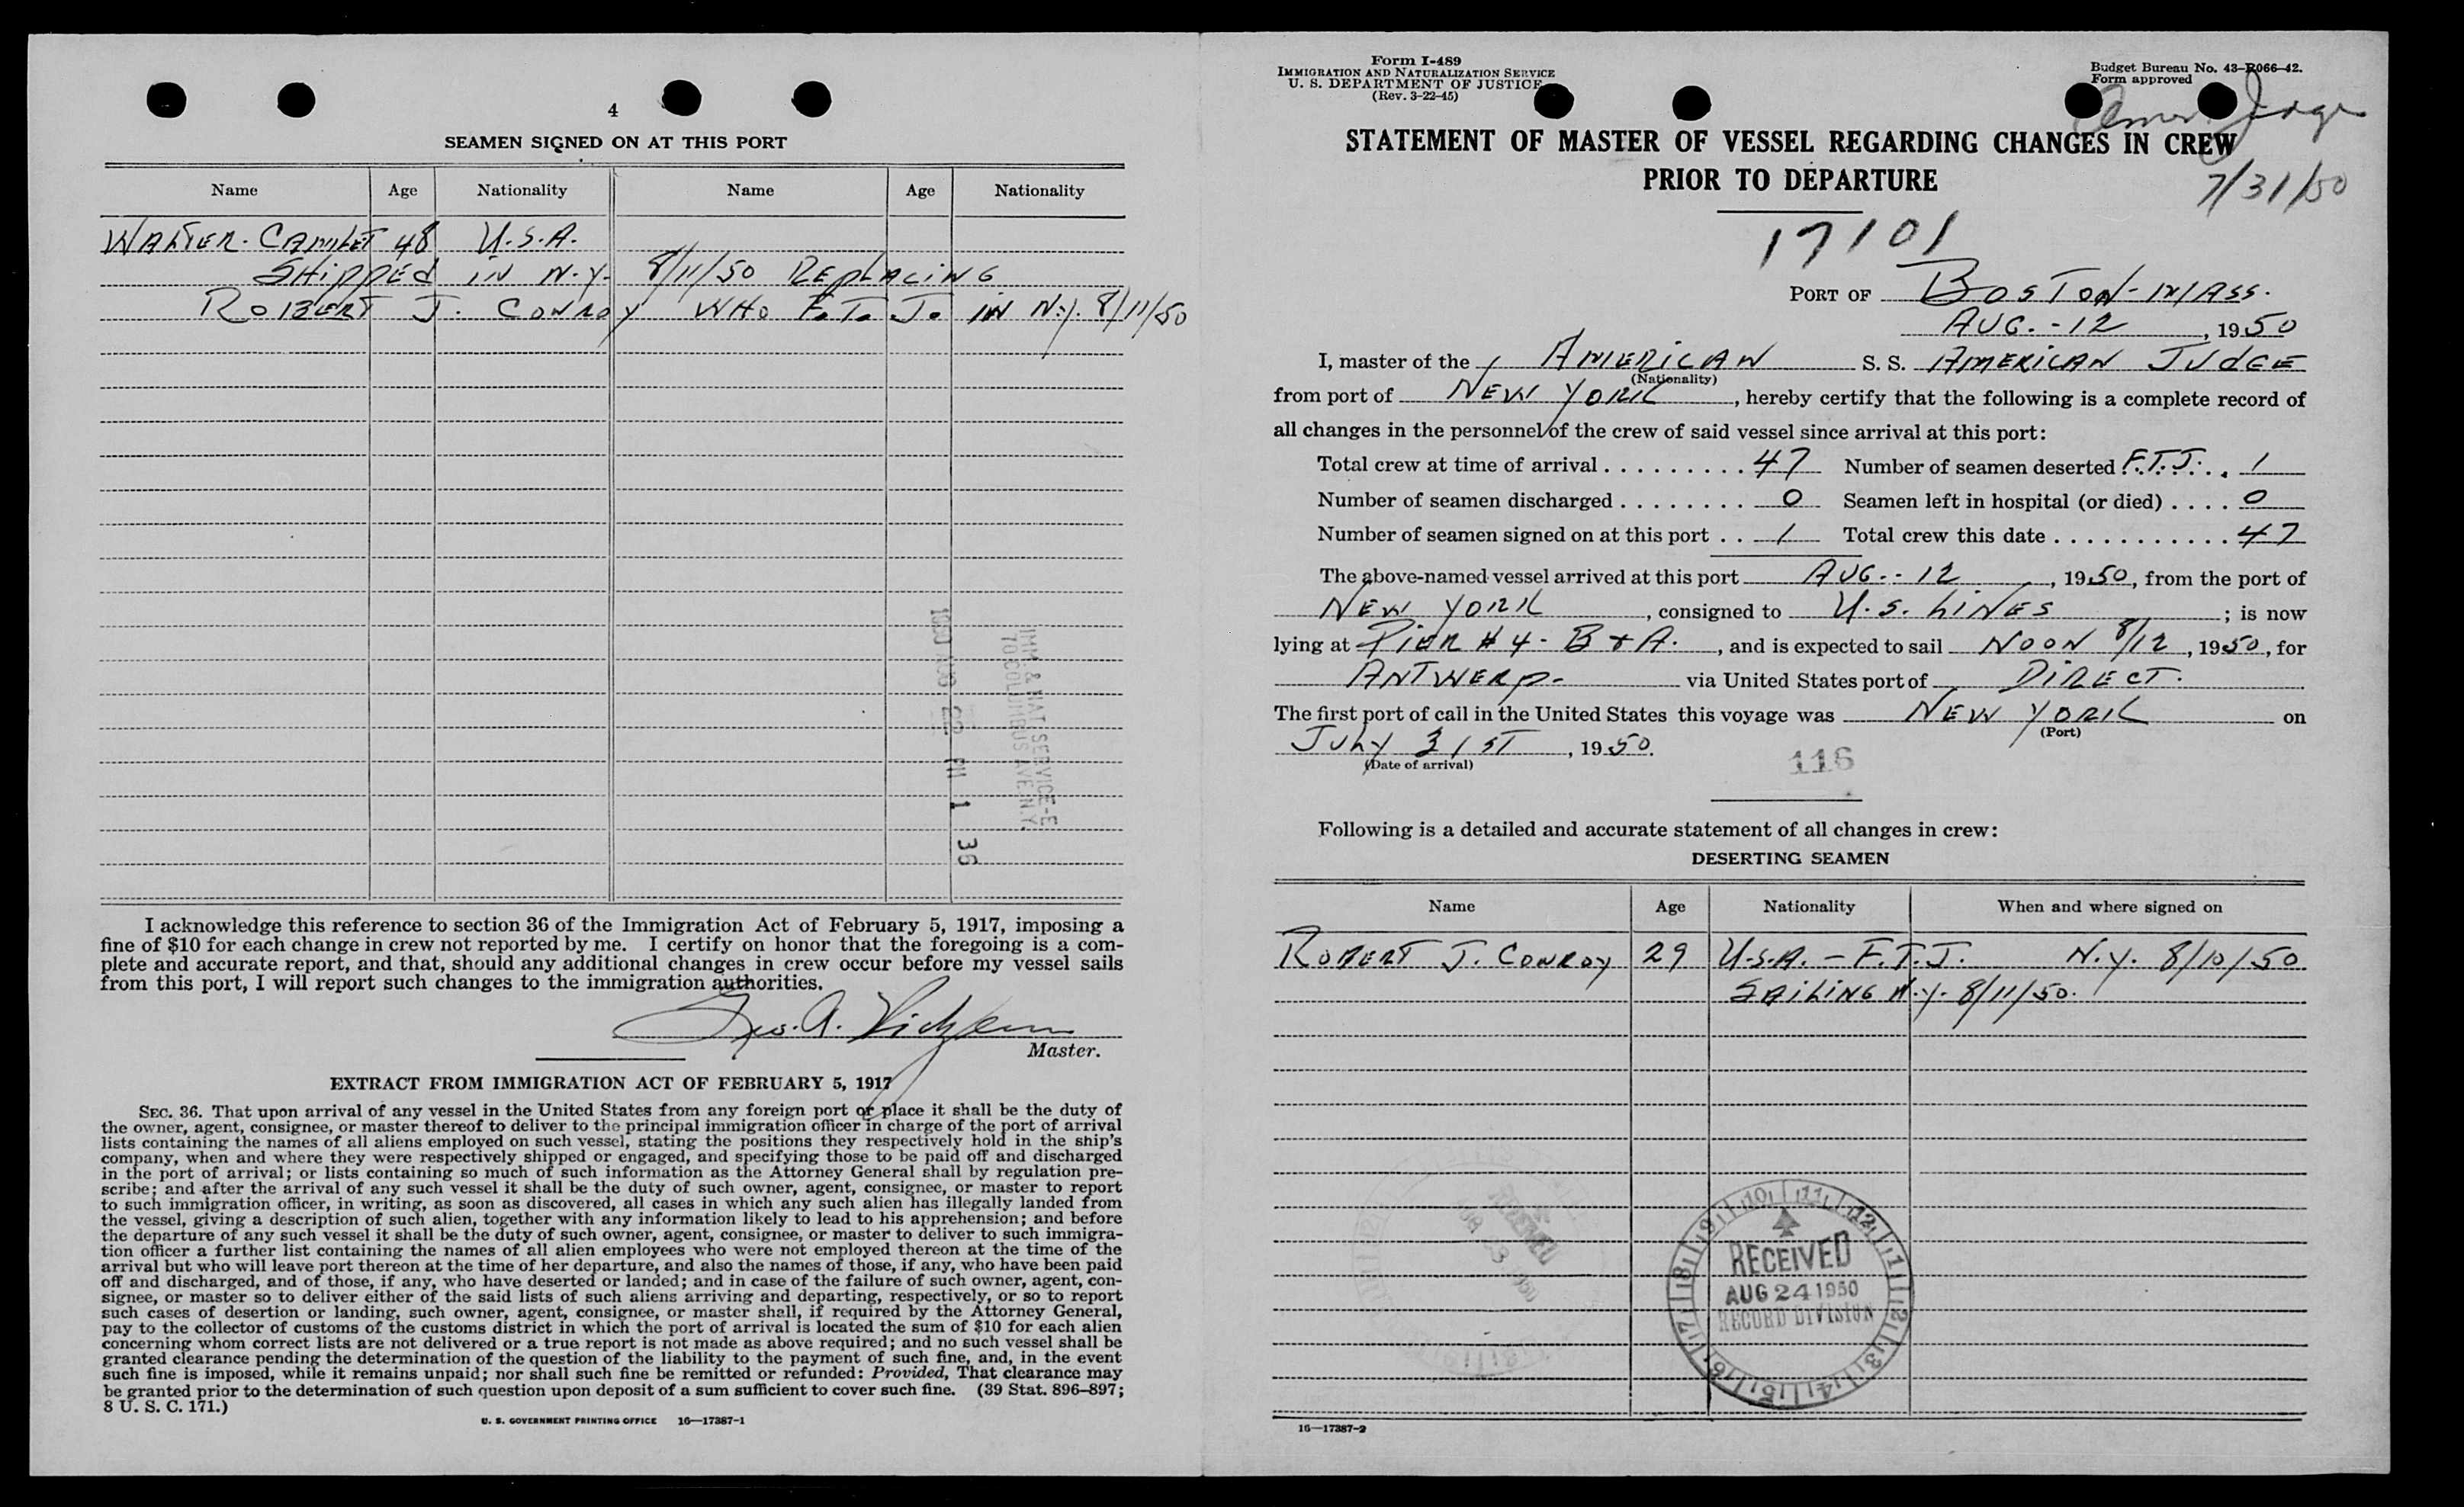 4
SEAMEN SIGNED ON AT THIS PORT
Name Age Nationality Name Age Nationality
WALTER. 48 U.S.A.
SHIPPED IN N.Y. 8/11/50 REPLACING
ROBERT J. CONROY WHO F.T.J. IN N.Y. 8/11/50
IMM & NAT SERVICE-E
70 COLUMBUS AVE N.Y.
1950 AUG 22 PM 1 36
I acknowledge this reference to section 36 of the Immigration Act of February 5, 1917, imposing a
fine of $10 for each change in crew not reported by me. I certify on honor that the foregoing is a com-
plete and accurate report, and that, should any additional changes in crew occur before my vessel sails
from this port, I will report such changes to the immigration authorities.
Master.
EXTRACT FROM IMMIGRATION ACT OF FEBRUARY 5, 1917
SEC. 36. That upon arrival of any vessel in the United States from any foreign port or place it shall be the duty of
the owner, agent, consignee, or master thereof to deliver to the principal immigration officer in charge of the port of arrival
lists containing the names of all aliens employed on such vessel, stating the positions they respectively hold in the ship's
company, when and where they were respectively shipped or engaged, and specifying those to be paid off and discharged
in the port of arrival; or lists containing so much of such information as the Attorney General shall by regulation pre-
scribe; and after the arrival of any such vessel it shall be the duty of such owner, agent, consignee, or master to report
to such immigration officer, in writing, as soon as discovered, all cases in which any such alien has illegally landed from
the vessel, giving a description of such alien, together with any information likely to lead to his apprehension; and before
the departure of any such vessel it shall be the duty of such owner, agent, consignee, or master to deliver to such immigra-
tion officer a further list containing the names of all alien employees who were not employed thereon at the time of the
arrival but who will leave port thereon at the time of her departure, and also the names of those, if any, who have been paid
off and discharged, and of those, if any, who have deserted or landed; and in case of the failure of such owner, agent, con-
signee, or master so to deliver either of the said lists of such aliens arriving and departing, respectively, or so to report
such cases of desertion or landing, such owner, agent, consignee, or master shall, if required by the Attorney General,
pay to the collector of customs of the customs district in which the port of arrival is located the sum of $10 for each alien
concerning whom correct lists are not delivered or a true report is not made as above required; and no such vessel shall be
granted clearance pending the determination of the question of the liability to the payment of such fine, and, in the event
such fine is imposed, while it remains unpaid; nor shall such fine be remitted or refunded: Provided, That clearance may
be granted prior to the determination of such question upon deposit of a sum sufficient to cover such fine. (39 Stat. 896–897;
8 U. S. C. 171.)
U. S. GOVERNMENT PRINTING OFFICE 16—17387-1
Form I-489
IMMIGRATION AND NATURALIZATION SERVICE
U. S. DEPARTMENT OF JUSTICE
(Rev. 3-22-45)
Budget Bureau No. 43-R066-42.
Form approved
7/31/50
STATEMENT OF MASTER OF VESSEL REGARDING CHANGES IN CREW
PRIOR TO DEPARTURE
17101
PORT OF BOSTON - MASS.
AUG. - 12, 1950
I, master of the AMERICAN S. S. AMERICAN JUDGE
(Nationality)
from port of NEW YORK, hereby certify that the following is a complete record of
all changes in the personnel of the crew of said vessel since arrival at this port:
Total crew at time of arrival . . . . . . . . . 47 Number of seamen deserted F.T.J. . . 1
Number of seamen discharged . . . . . . . . 0 Seamen left in hospital (or died) . . . . 0
Number of seamen signed on at this port . . 1 Total crew this date . . . . . . . . . . . 47
The above-named vessel arrived at this port AUG. - 12, 1950, from the port of
NEW YORK, consigned to U.S. LINES; is now
lying at PIER # 4 - B & A., and is expected to sail NOON 8/12, 1950, for
ANTWERP- via United States port of DIRECT.
The first port of call in the United States this voyage was NEW YORK on
(Port)
JULY 31ST, 1950.
(Date of arrival)
116
Following is a detailed and accurate statement of all changes in crew:
DESERTING SEAMEN
Name Age Nationality When and where signed on
ROBERT J. CONROY 29 U.S.A. - F.T.J. N.Y. 8/10/50
SAILING N.Y. 8/11/50.
RECEIVED
AUG 24 1950
RECORD DIVISION
16—17387-2